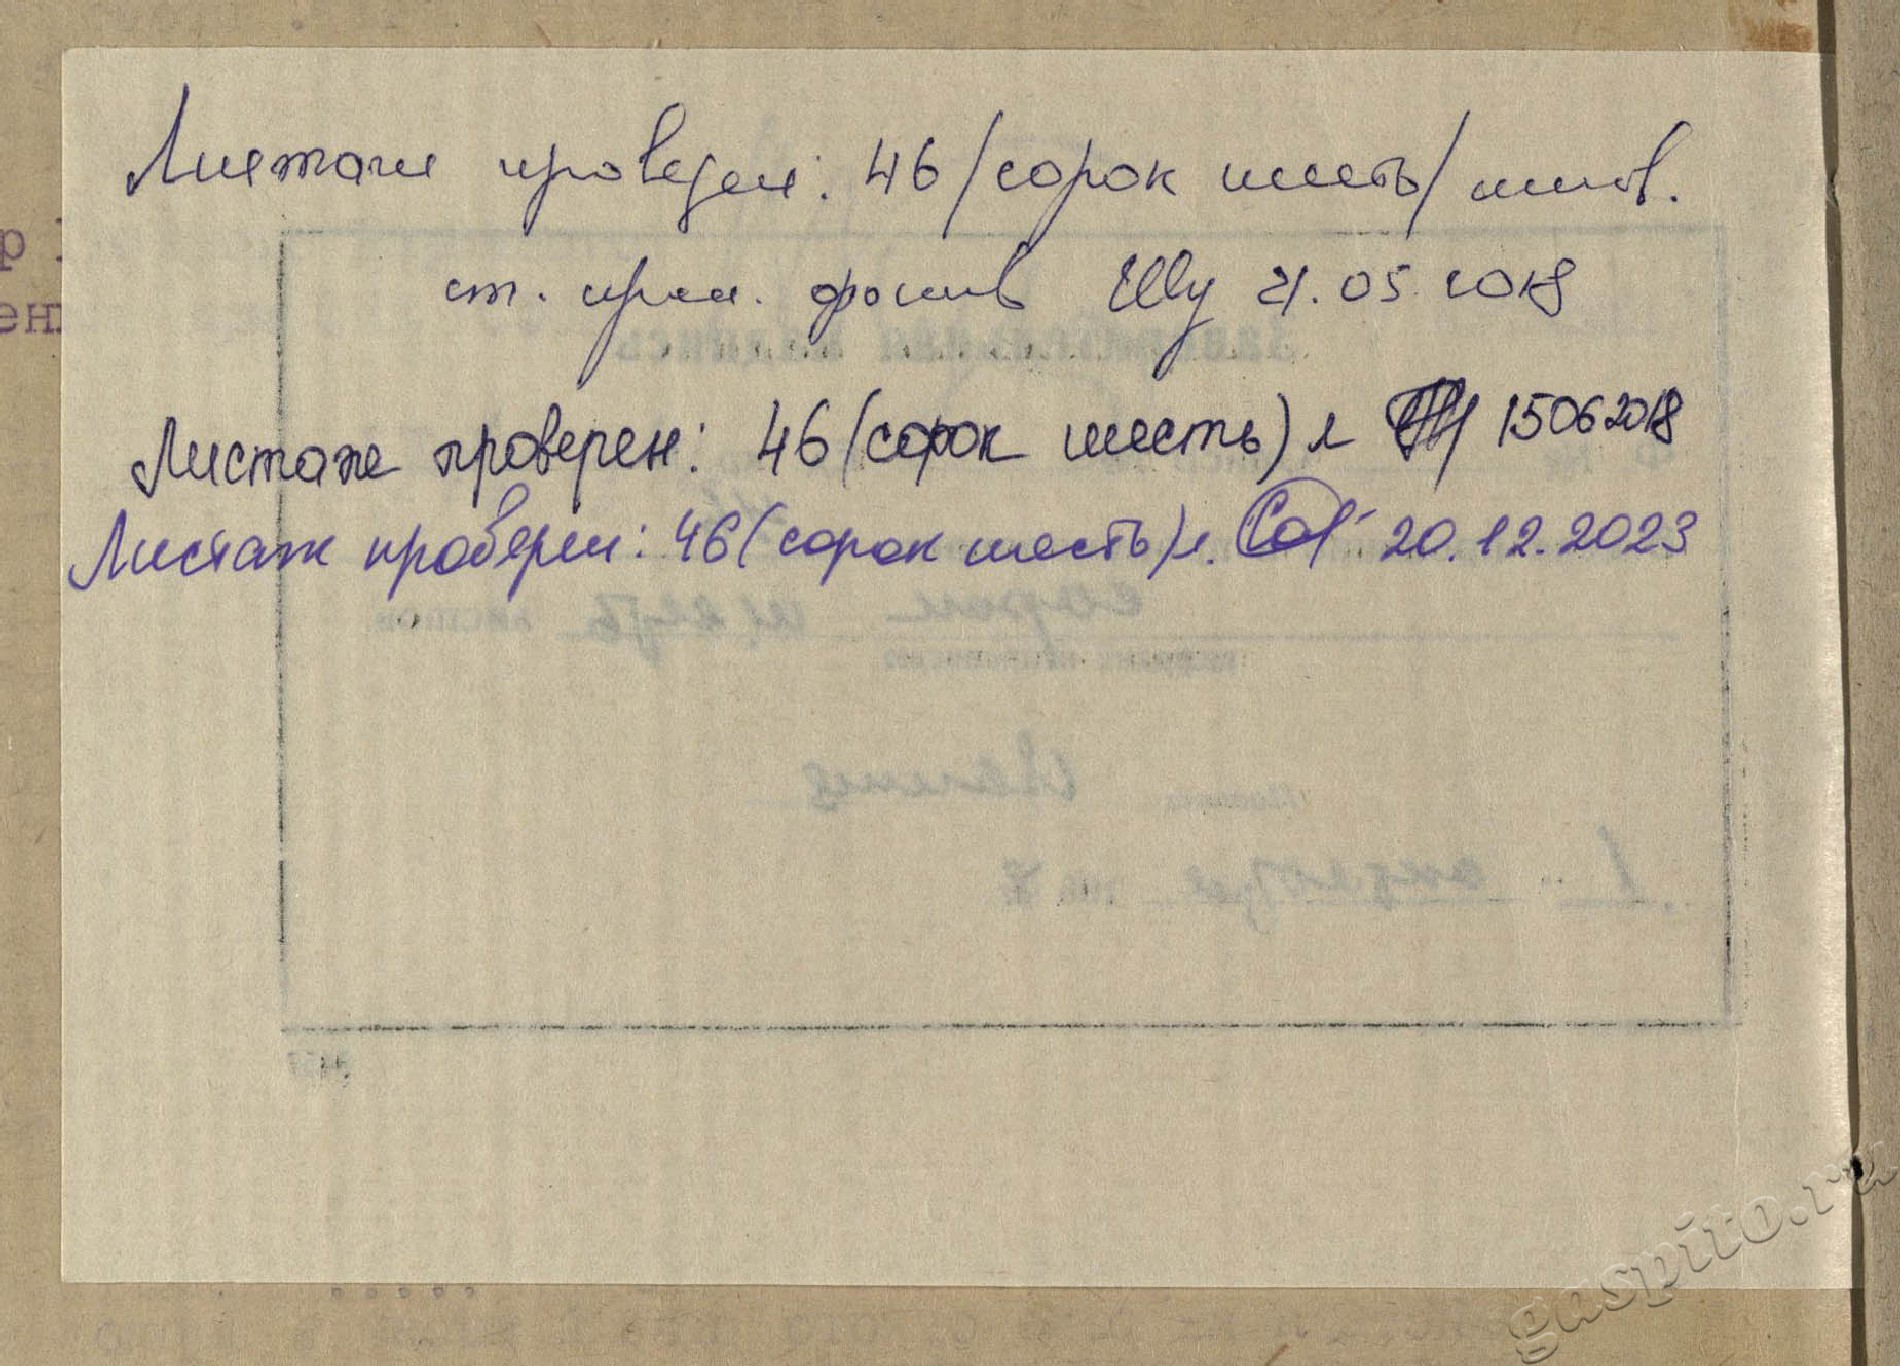 Листаж проведен: 46 /сорок шесть/ листов.
ст. хран. фондов 21.05.2018
Листаж проверен: 46 (сорок шесть) л 15062018
Листаж проверен: 46 (сорок шесть) л. 20.12.2023
сорок шесть листов
1 на 7
gaspito.ru